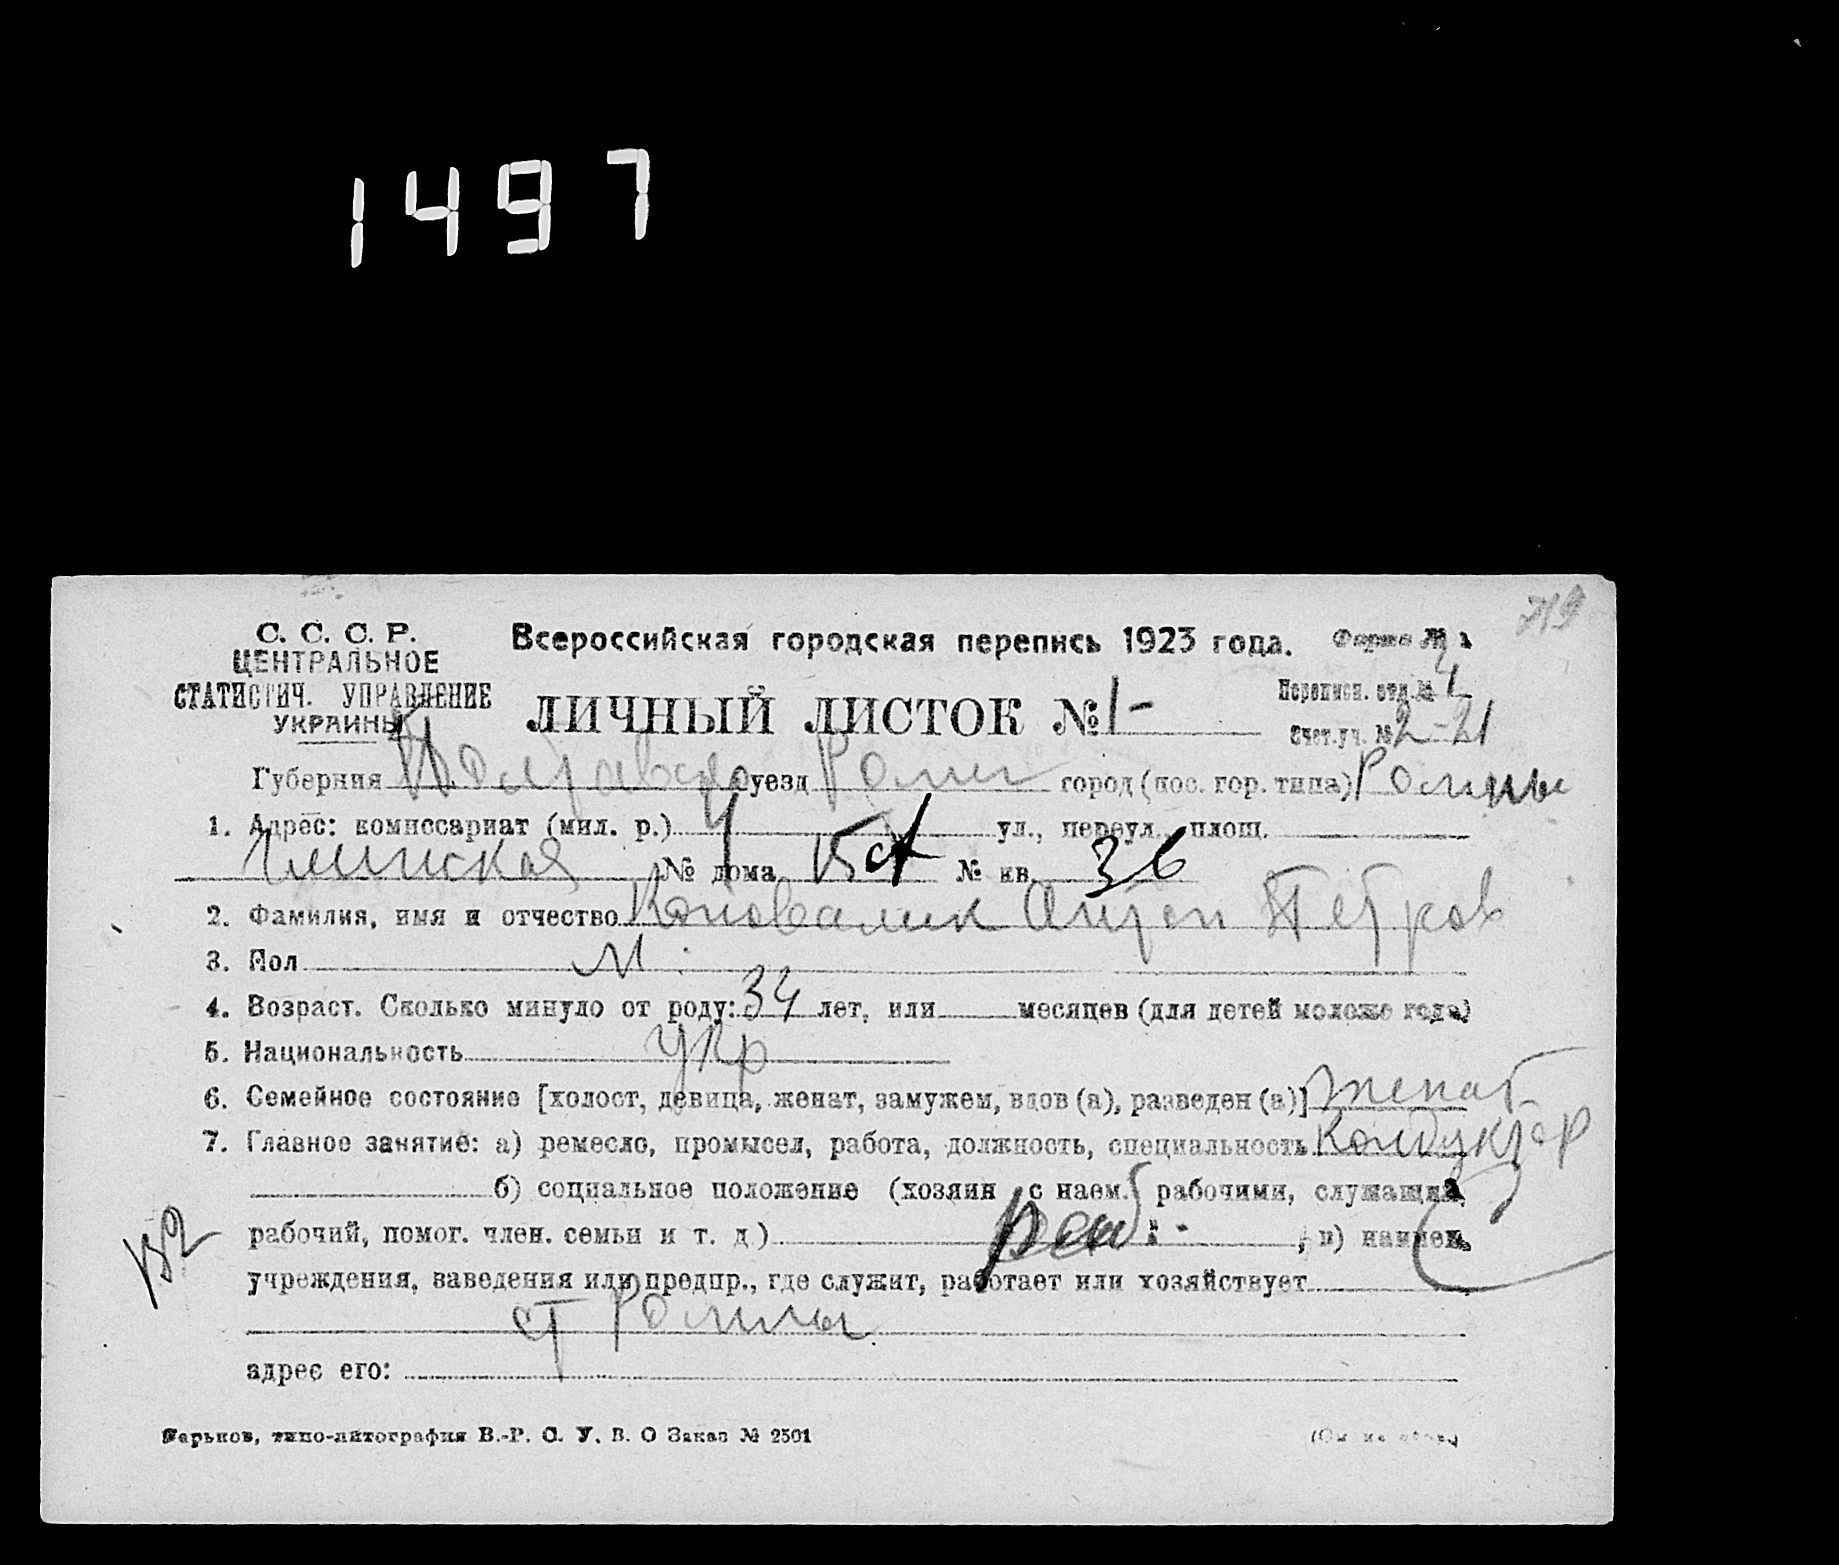 1497
719
С. С. С. Р.
ЦЕНТРАЛЬНОЕ
СТАТИСТИЧ. УПРАВЛЕНИЕ
УКРАИНЫ
Всероссийская городская перепись 1923 года.
Форма №
ЛИЧНЫЙ ЛИСТОК № 1-
Переписн. отд. № 4
Счет. уч. № 2-21
Губерния Полтавско уезд Ромн город (пос. гор. типа) Ромны
1. Адрес: комиссариат (мил. р.) ул., переул., площ.
Глинская № дома № кв. 36
2. Фамилия, имя и отчество Коновалик Антон Петров
3. Пол М
4. Возраст. Сколько минуло от роду: 34 лет, или месяцев (для детей моложе года)
5. Национальность укр
6. Семейное состояние [холост, девица, женат, замужем, вдов (а), разведен (а)] женат
7. Главное занятие: а) ремесло, промысел, работа, должность, специальность Кондуктор
б) социальное положение (хозяин с наем. рабочими, служащий,
рабочий, помог. член. семьи и т. д.) , в) наимен.
учреждения, заведения или предпр., где служит, работает или хозяйствует
ст Ромны
адрес его:
Харьков, типо-литография В.-Р. С. У. В. О Заказ № 2501